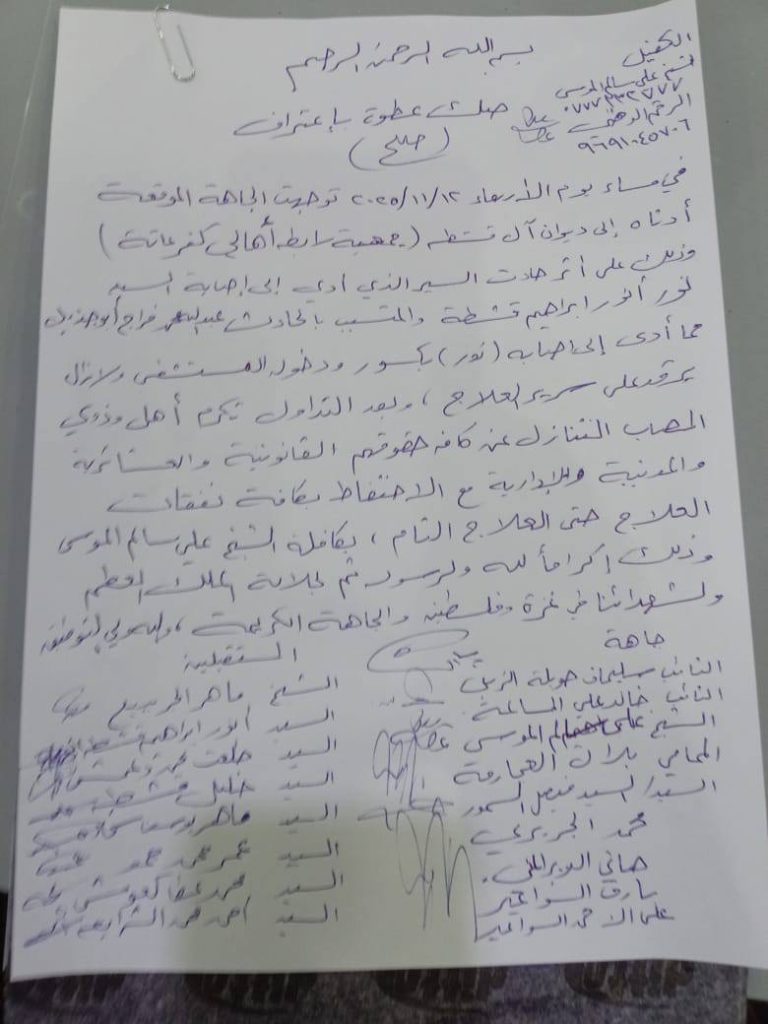 بسم الله الرحمن الرحيم
الكفيل
الشيخ علي سالم الموسى
الرقم الوطني
٩٦٩١٠٤٥٧٠٦
صك عطوة بإعتراف
(صلح)
في مساء يوم الأربعاء ٢٠٢٥/١١/١٢ توجهت الجاهة الموقعة
أدناه إلى ديوان آل قشطة (جمعية رابطة أهالي كفرعانة)
وذلك على أثر حادث السير الذي أدى إلى إصابة السيد
نور أنور ابراهيم قشطة والمتسبب بالحادث فراج أبو
مما أدى إلى اصابة (نور) بكسور ودخوله المستشفى ولازال
يرقد على سرير العلاج، وبعد التداول تكرم أهل وذوي
المصاب التنازل عن كافة حقوقهم القانونية والعشائرية
والمدنية والإدارية مع الاحتفاظ بكافة نفقات
العلاج حتى العلاج التام، بكفالة الشيخ علي سالم الموسى
وذلك إكراماً لله ولرسوله ثم لجلالة الملك المعظم
ولشهدائنا في غزة وفلسطين والجاهة الكريمة، والله ولي التوفيق
جاهة
النائب سليمان حويلة الزبن
النائب خالد علي
الشيخ علي سالم الموسى
المحامي بلال العمارمة
السيد فيصل السمور
محمد الجريري
هاني
طارق السواعير
علي السواعير
المستقبلين
الشيخ ماهر المربيع
السيد أنور ابراهيم قشطة
السيد طلعت محمد
السيد خليل قشطة
السيد ماهر
السيد عمر محمد حمد
السيد محمد عطا
السيد احمد محمد